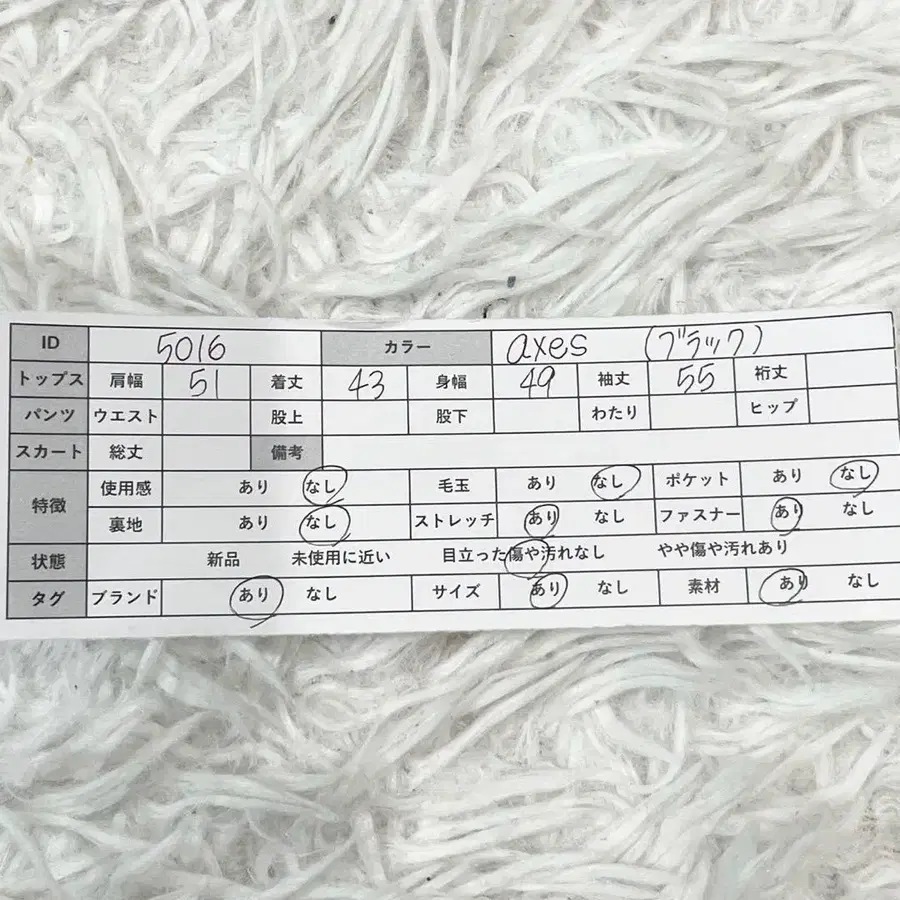 ID 5016 カラー axes (ブラック)
トップス 肩幅 51 着丈 43 身幅 49 袖丈 55 裄丈
パンツ ウエスト 股上 股下 わたり ヒップ
スカート 総丈 備考
特徴 使用感 あり なし 毛玉 あり なし ポケット あり なし
裏地 あり なし ストレッチ あり なし ファスナー あり なし
状態 新品 未使用に近い 目立った傷や汚れなし やや傷や汚れあり
タグ ブランド あり なし サイズ あり なし 素材 あり なし